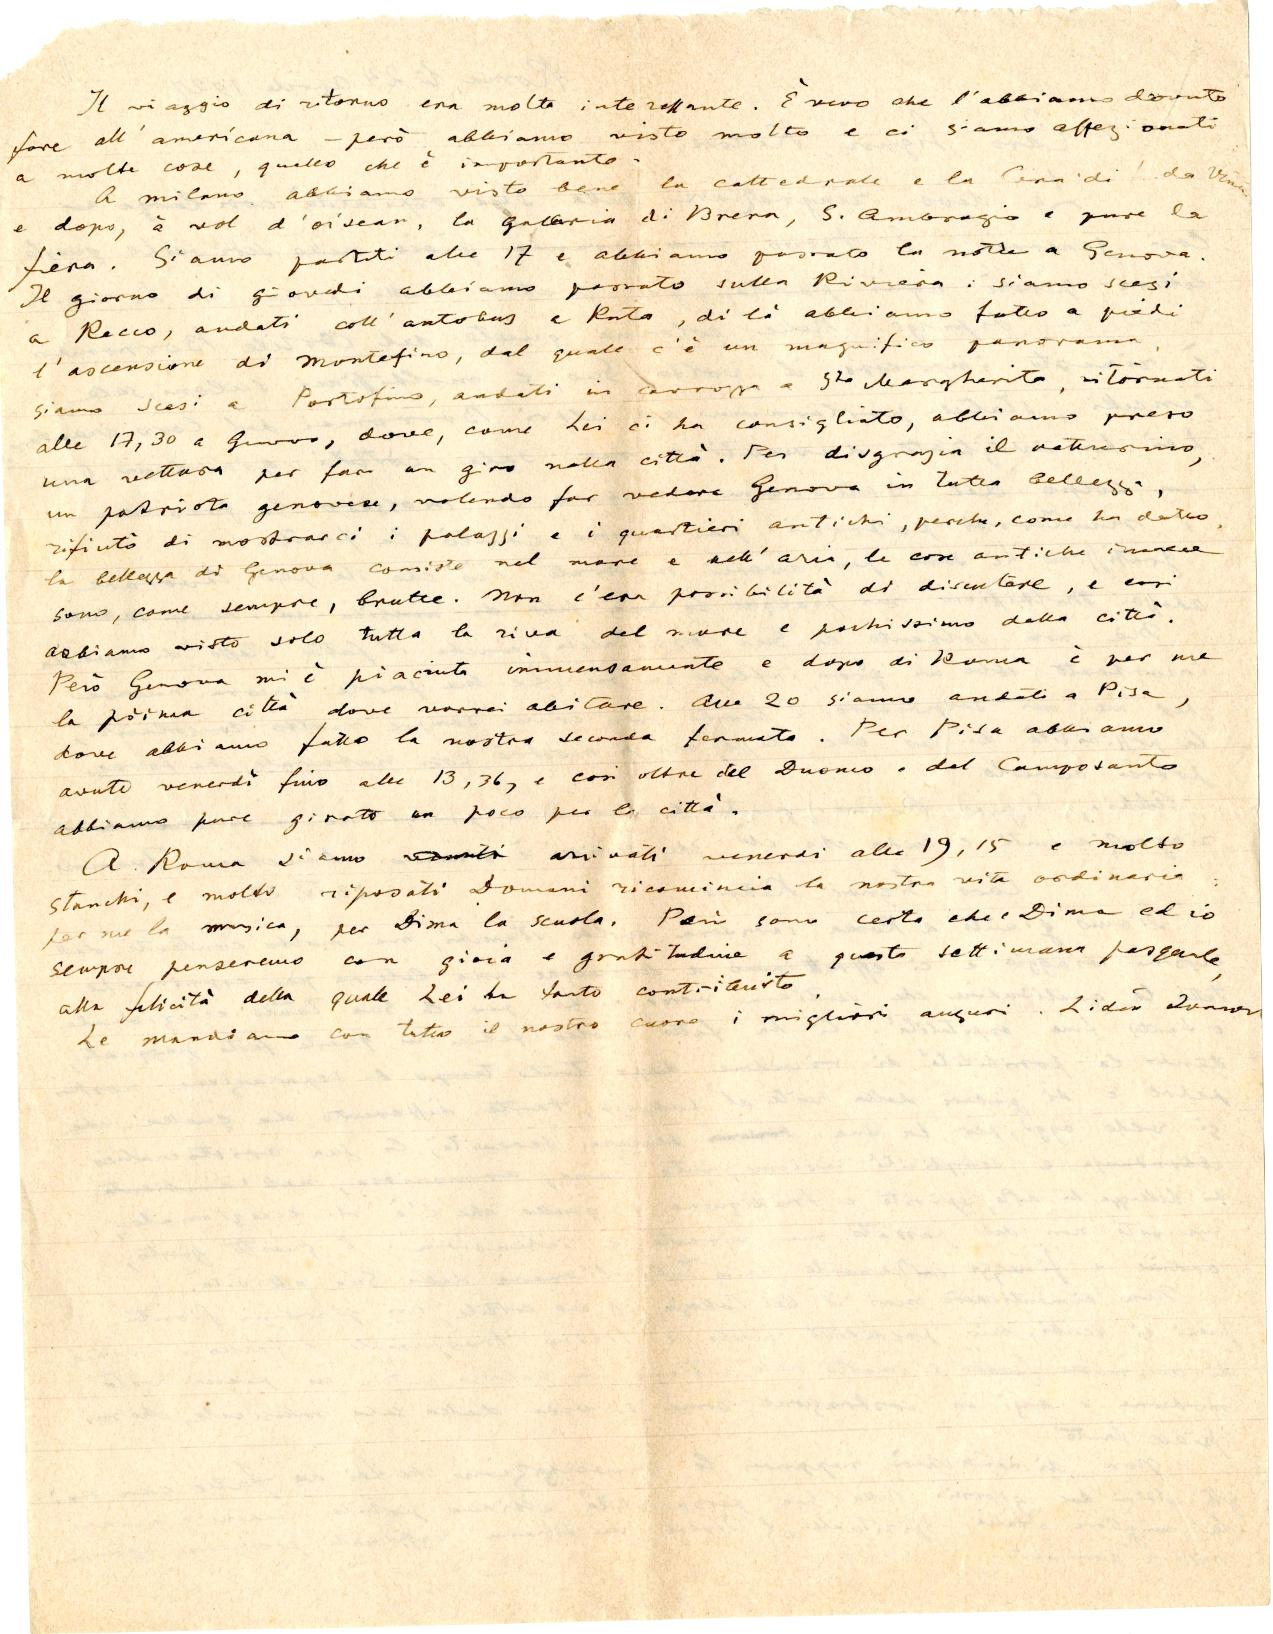 Il viaggio di ritorno era molto interessante. È vero che l'abbiamo dovuto
fare all'americana – però abbiamo visto molto e ci siamo affezionati
a molte cose, quello che è importante.
A milano abbiamo visto bene la cattedrale e la Cena di da Vinci
e dopo, à vol d'oisean, la galleria di Brera, S. Ambrogio e pure la
fiera. Siamo partiti alle 17 e abbiamo passato la notte a Genova.
Il giorno di giovedi abbiamo passato sulla Riviera: siamo scesi
a Recco, andati coll'antobus a Ruta, di là abbiamo fatto a piedi
l'ascensione di Montefino, dal quale c'è un magnifico panorama,
siamo scesi a Portofino, andati in carrozza a Sta Margherita, ritornati
alle 17,30 a Genova, dove, come Lei ci ha consigliato, abbiamo preso
una vettura per fare un giro nella città. Per disgrazia il vetturino,
un patriota genovese, volendo far vedere Genova in tutta bellezza,
rifiutò di mostrarci i palazzi e i quartieri antichi, perche, come ha detto,
la bellezza di Genova consiste nel mare e nell'aria, le cose antiche invece
sono, come sempre, brutte. Non c'era possibilità di discutere, e così
abbiamo visto solo tutta la riva del mare e pochissimo della città.
Però Genova mi è piaciuta immensamente e dopo di Roma è per me
la prima città dove vorrei abitare. Alle 20 siamo andati a Pisa,
dove abbiamo fatto la nostra seconda fermata. Per Pisa abbiamo
avuto venerdì fino alle 13,36, e così oltre del Duomo e del Camposanto
abbiamo pure girato un poco per la città.
A Roma siamo venuti arrivati venerdi alle 19,15 e molto
stanchi, e molto riposati Domani ricomincia la nostra vita ordinaria:
per me la musica, per Dima la scuola. Però sono certa che e Dima ed io
sempre penseremo con gioia e gratitudine a questa settimana pasquale,
alla felicità della quale Lei ha tanto contribuito.
Le mandiamo con tutto il nostro cuore i migliori auguri. Lidia